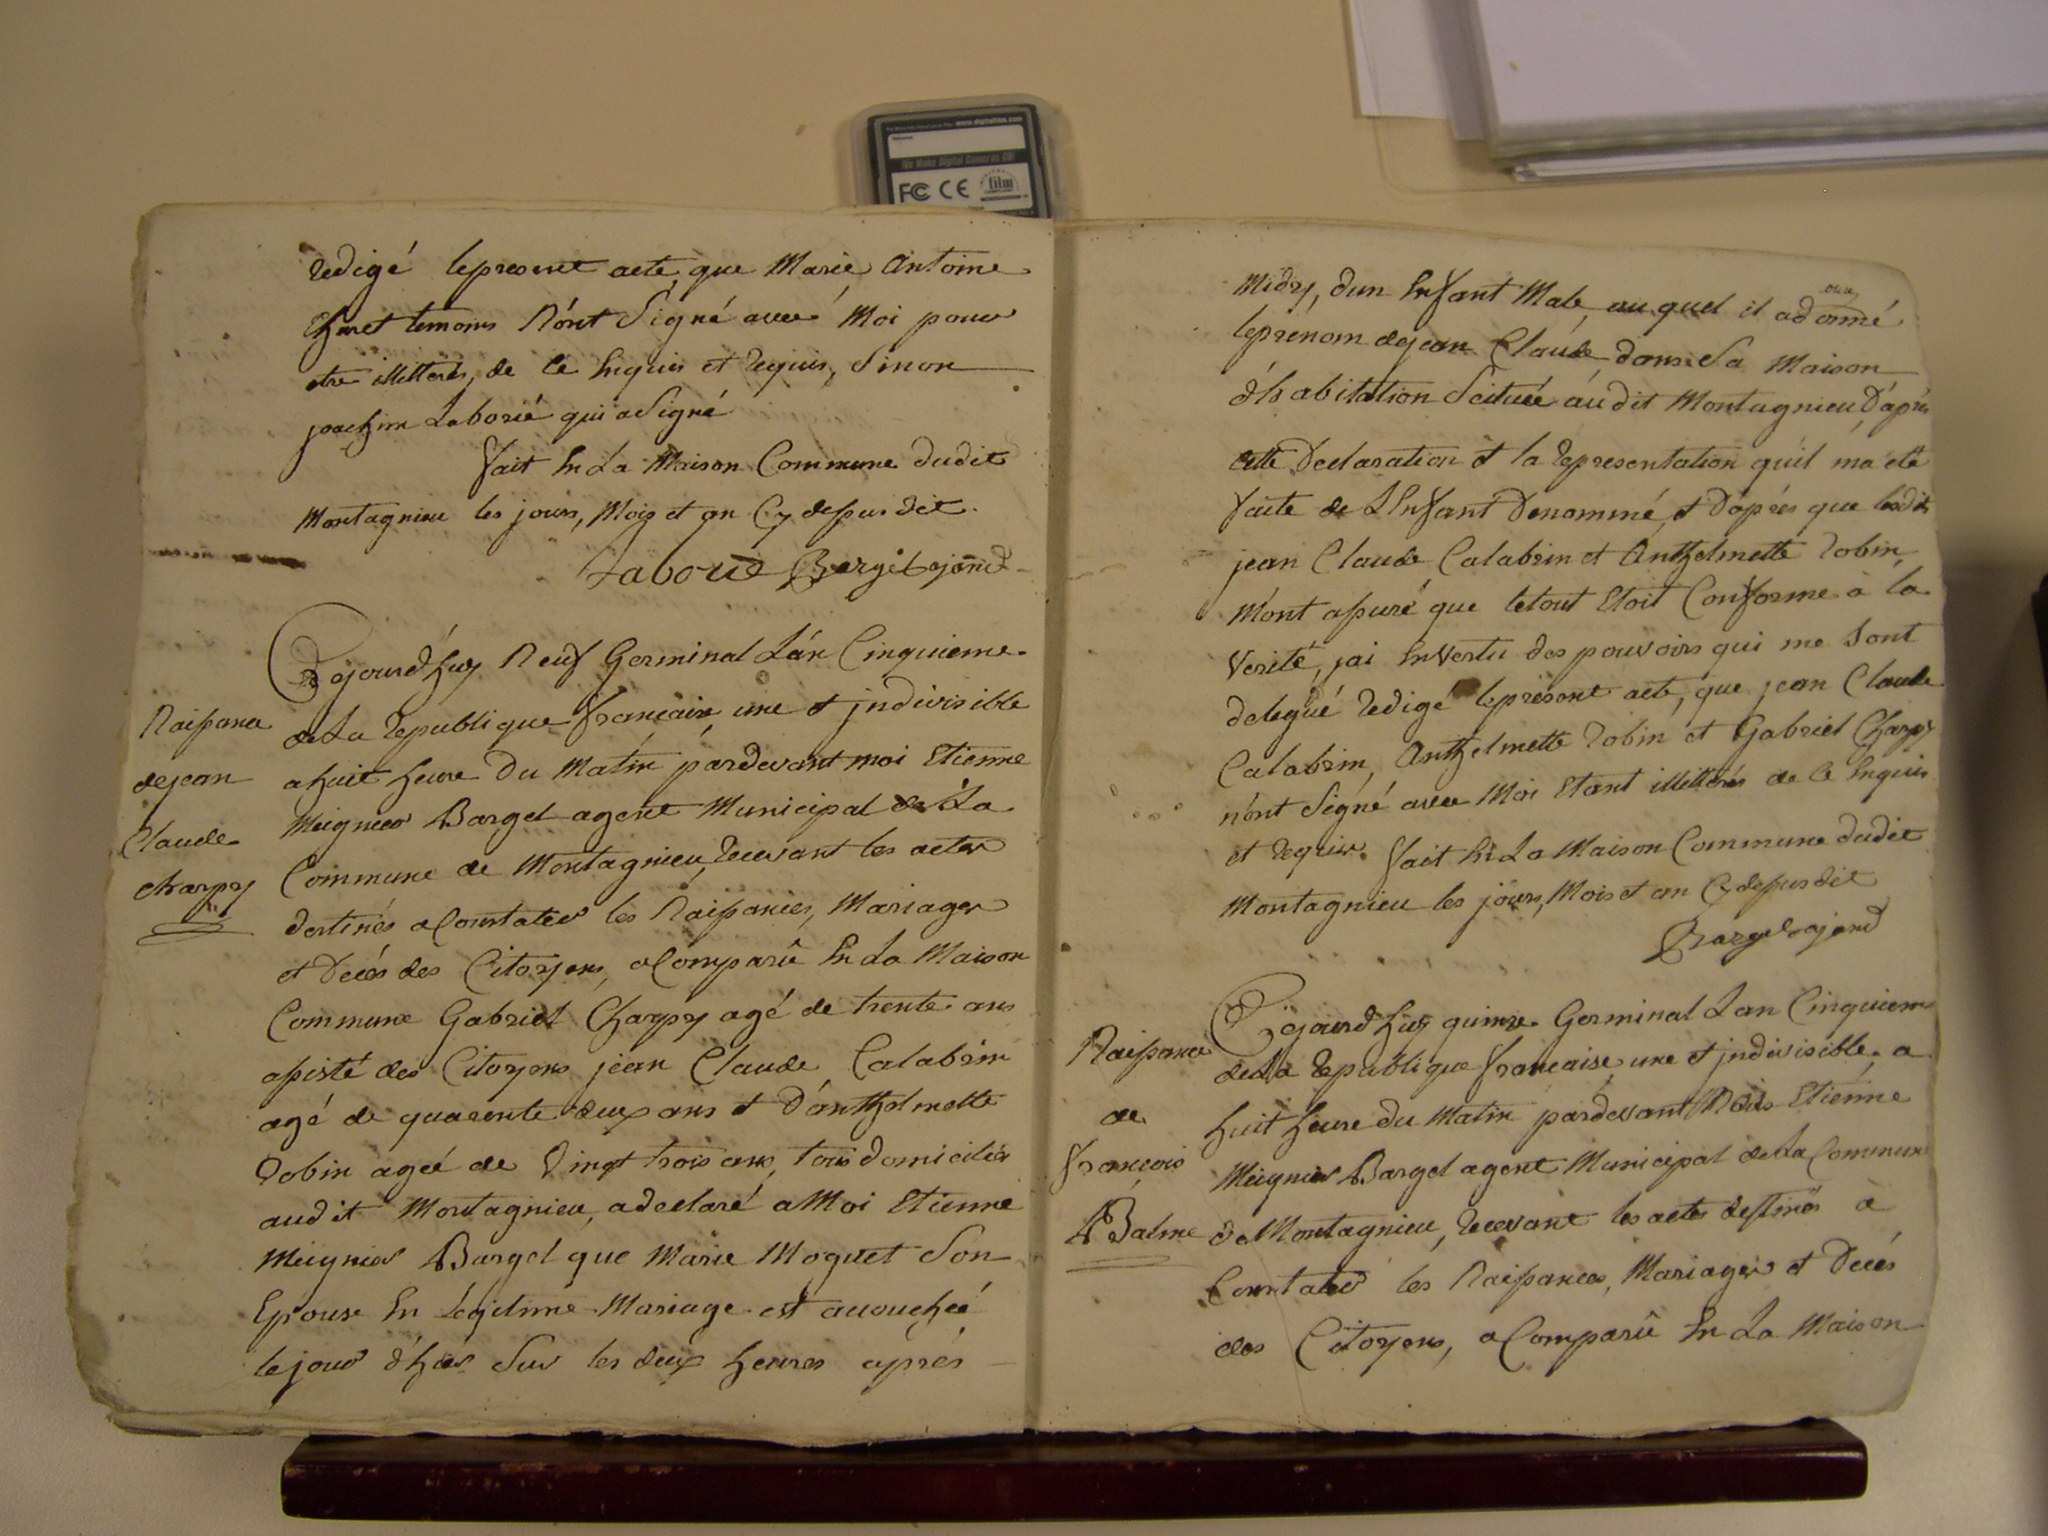 www.digitalfilm.com
We Make Digital Cameras Go!
FC CE film
redigé lepresent acte, que Marie, Antoine
temoins N'ont Signé avec Moi pour
etre illitterés, de ce Enquis et requis, Sinon
joachim Laborié qui a Signé
fait En La Maison Commune dudit
Montagnieu les jours, Mois et an Cy dessus dit.
Laborié Bargel ajend
Cejourd'huy Neuf Germinal L'an Cinquieme
deLa republique francaise une et jndivisible
a huit heure Du Matin pardevant moi Etienne
Meignier Bargel agent Municipal de La
Commune de Montagnieu, recevant les actes
destinés a Constater les Naissances, Mariages
et Decés des Citoyens, a Comparû En La Maison
Commune Gabriel Charpy agé de trente ans
assisté des Citoyens jean Claude Calabrin
agé de quarente deux ans et D'anthelmette
Robin ageé de Vingt trois ans, tous domiciliés
audit Montagnieu, a declaré a Moi Etienne
Meignier Bargel que Marie Moguet Son
Epouse En legitime Mariage est accouchée
le jour d'hier Sur les deux heures aprés
Naissance
de jean
Claude
charpy
Midy, d'un Enfant Male, au quel il a donné
le prénom de jean Claude, dans Sa Maison
d'habitation Scituée áudit Montagnieu, D'aprés
cette Declaration et la representation qu'il m'a eté
faite de L'Enfant Denommé, et D'aprés que lesdits
jean Claude Calabrin et Anthelmette Robin,
M'ont assuré que letout Etoit Conforme à la
Verité, jai En Vertu des pouvoirs qui me Sont
delegué redigé leprésent acte, que jean Claude
Calabrin, Anthelmette Robin et Gabriel Charpy
n'ont Signé avec Moi Etant illitterés de ce Enquis
et requis. fait En La Maison Commune dudit
Montagnieu les jours, Mois et an Cy dessus dit
Bargel ajend
Cejourd'huy quinze Germinal Lan Cinquieme
deLa republique francaise une et jndivisible a
huit heure du Matin pardevant Etienne
Meignier Bargel agent Municipal de La Commune
de Montagnieu, recevant les actes destinés à
Constater les Naissances, Mariages et Decés
des Citoyens, a Comparû En La Maison
Naissance
de
francois
Balme